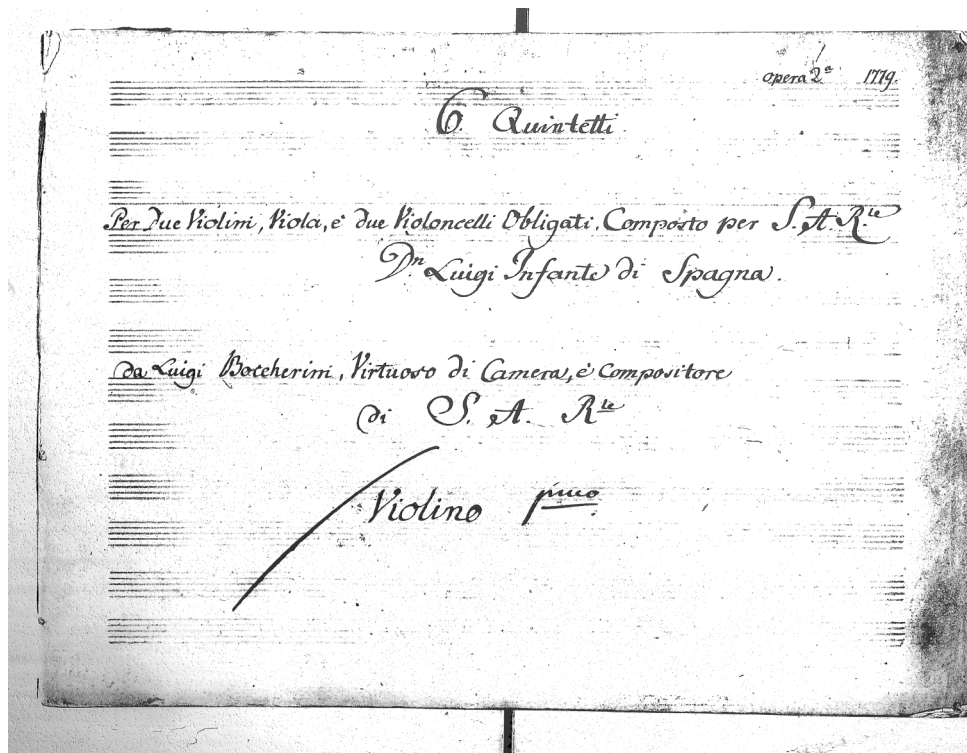 opera 2ª 1779.
6. Quintetti
Per Due Violini, Viola, è due Violoncelli Obligati, Composto per S. A. R.le
D.n Luigi Infante di Spagna.
da Luigi Boccherini, Virtuoso di Camera, è Compositore
di S. A. R.le
Violino pmo